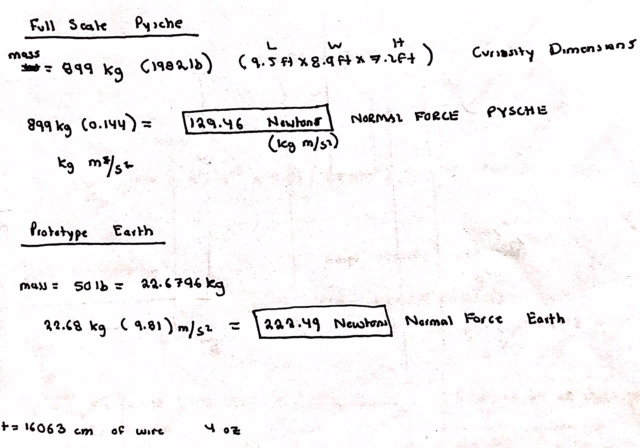 Full Scale Pysche
L W H
mass = 899 kg (1982lb) (9.5 ft x 8.9 ft x 7.2 ft) Curiosity Dimensions
899 kg (0.144) = 129.46 Newtons NORMAL FORCE PYSCHE
(kg m/s²)
kg m/s²
Prototype Earth
mass = 50 lb = 22.6796 kg
22.68 kg (9.81) m/s² = 222.49 Newtons Normal Force Earth
t = 16063 cm of wire 4 oz